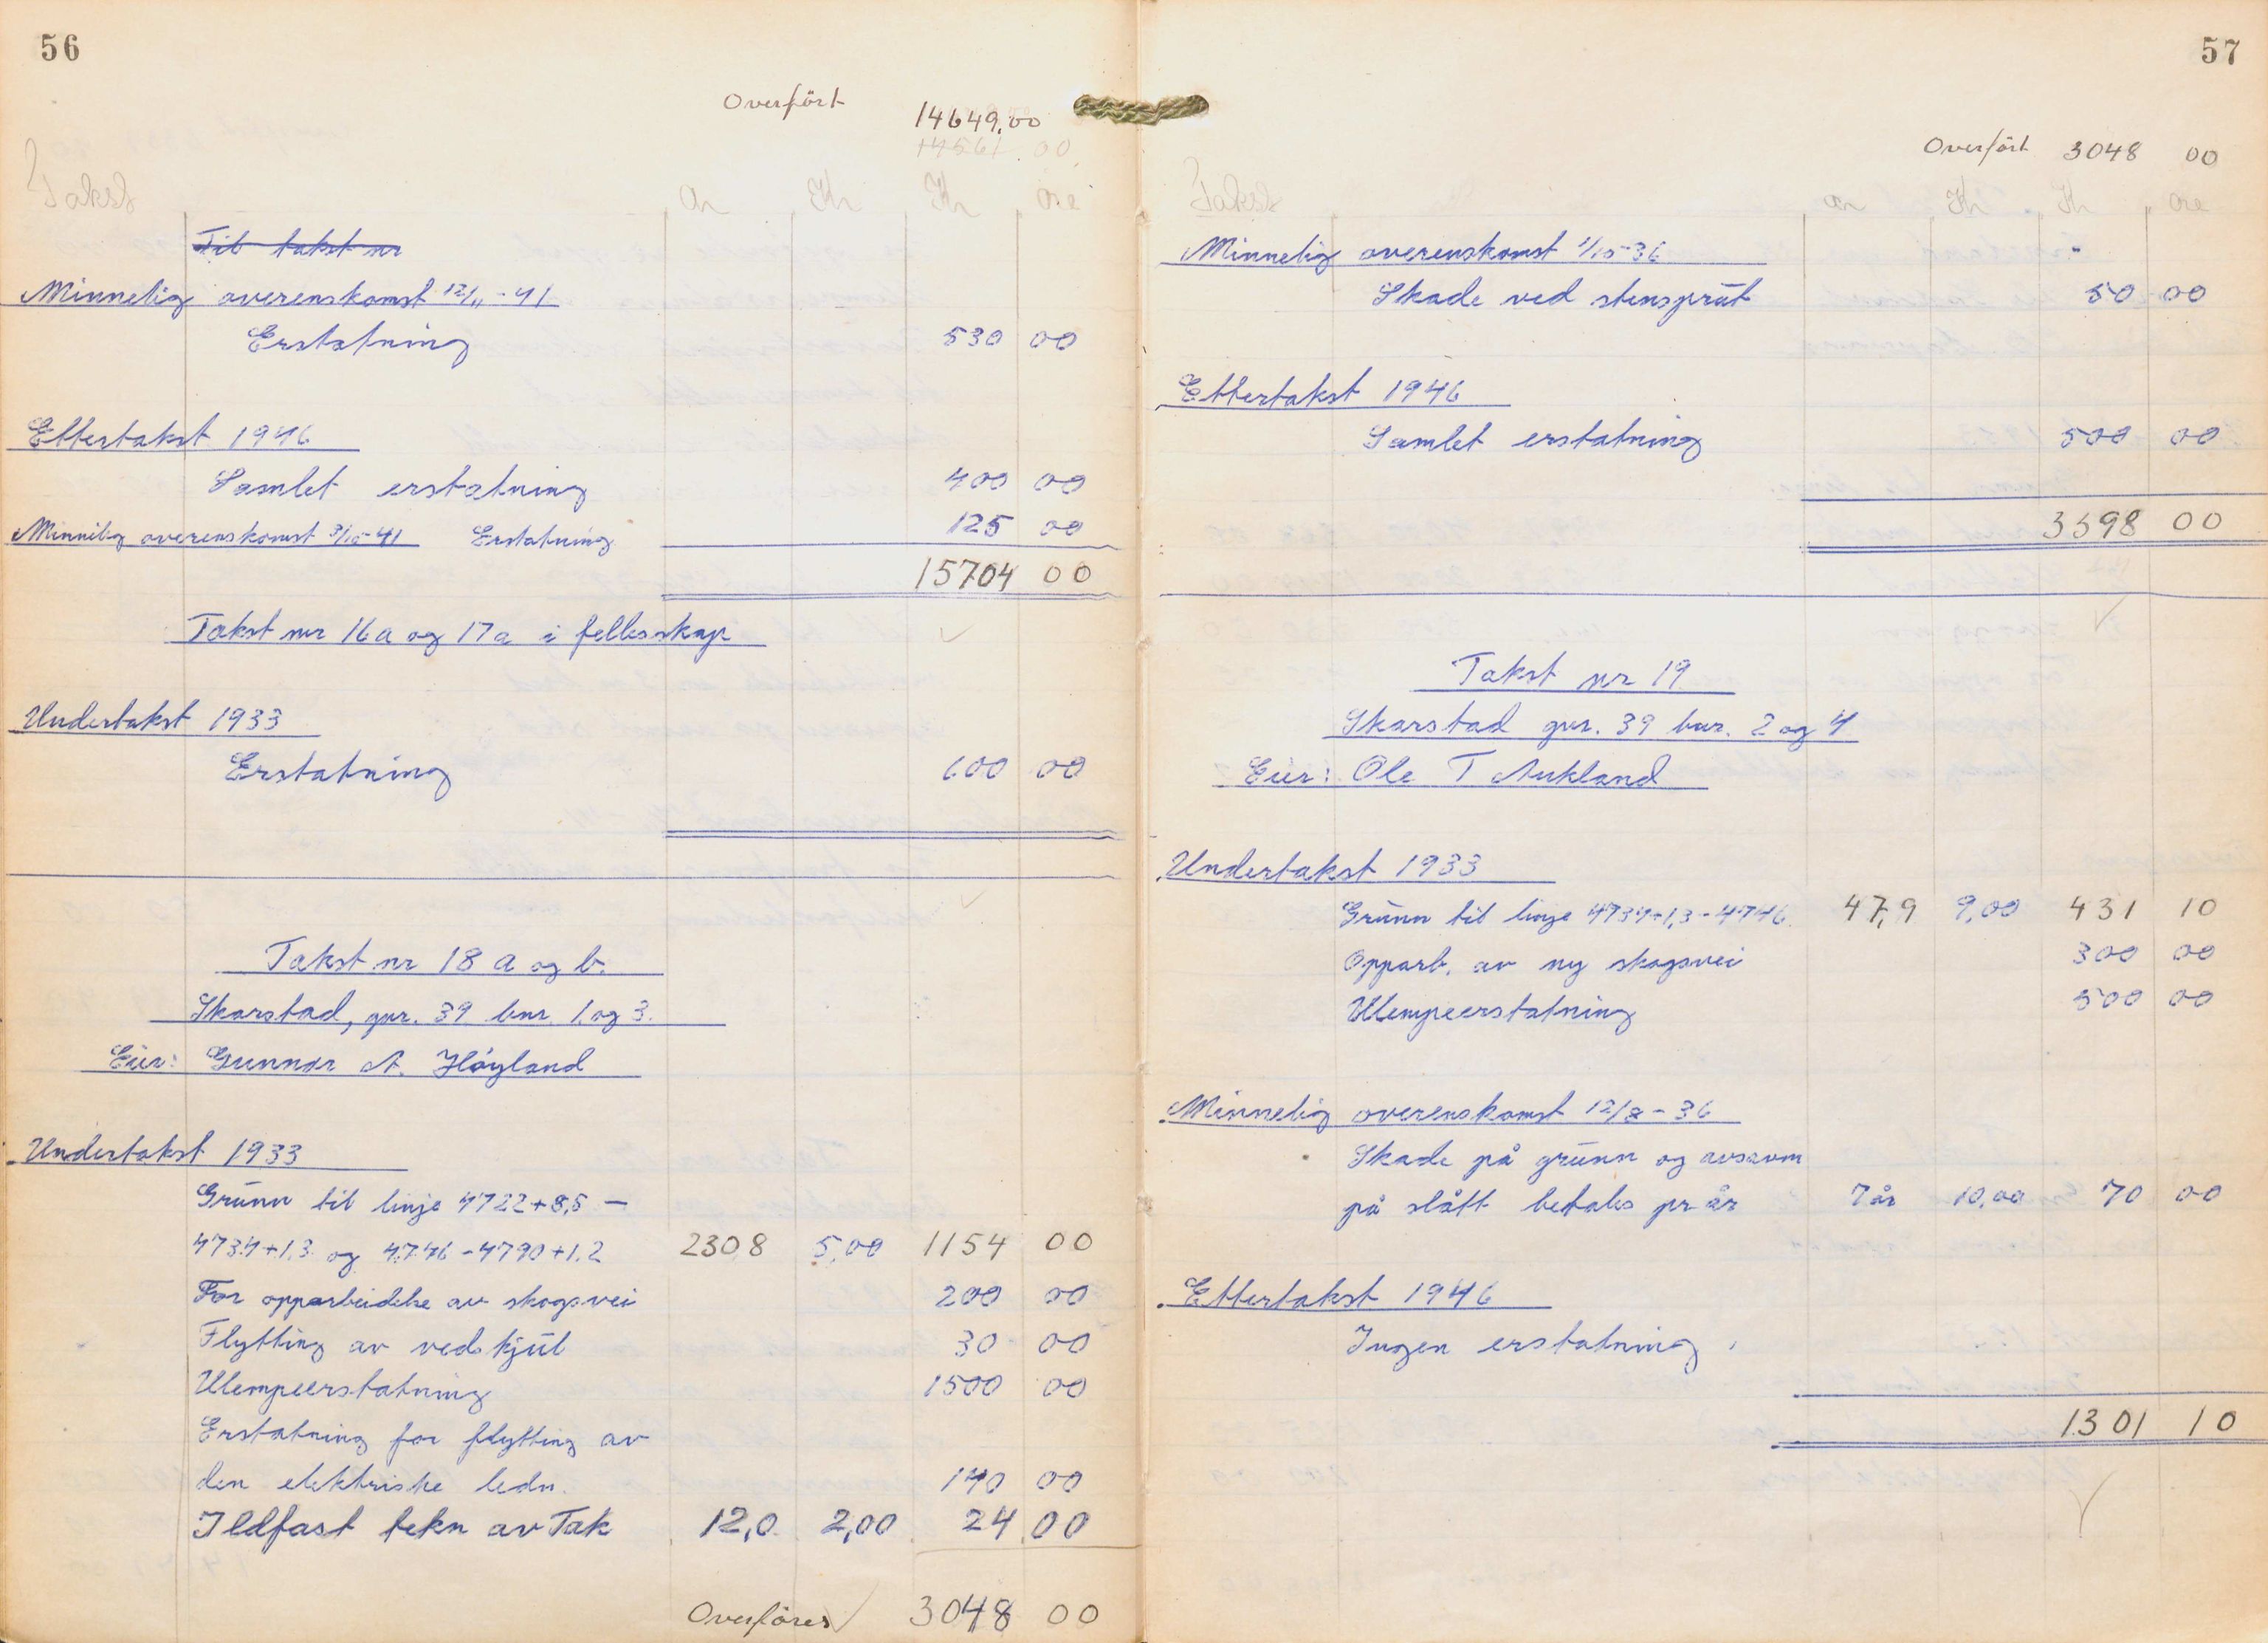 56
Overfört 14649,00
14561.00
Takst ar Kr Kr øre
Til takst nr
Minnelig overenskomst 12/11-41
Erstatning 530 00
Ettertakst 1946
Samlet erstatning 400 00
Minnelig overenskomst 3/10-41 Erstatning 125 00
15704 00
Takst nr 16a og 17a i fellesskap
Undertakst 1933
Erstatning 600 00
Takst nr 18 a og b.
Skarstad, gnr. 39 bnr. 1. og 3.
Eier: Gunnar A. Høyland
Undertakst 1933
Grunn til linje 4722+8,5 –
4734+1,3 og 4746-4790+1,2 230,8 5,00 1154 00
For opparbeidelse av skogsvei 200 00
Flytting av vedskjul 30 00
Ulempeerstatning 1500 00
Erstatning for flytting av
den elektriske ledn. 140 00
Ildfast tekn av Tak 12,0 2,00 24 00
Overföres 3048 00
57
Overfört 3048 00
Takst ar Kr Kr øre
Minnelig overenskomst 1/10-36
Skade ved stensprut 50 00
Ettertakst 1946
Samlet erstatning 500 00
3598 00
Takst nr 19
Skarstad gnr. 39 bnr. 2 og 4
Eier: Ole T Aukland
Undertakst 1933
Grunn til linje 4734+1,3-4746 47,9 9,00 431 10
Opparb. av ny skogsvei 300 00
Ulempeerstatning 500 00
Minnelig overenskomst 12/8-36
Skade på grunn og avsavn
på slått betales pr år 7 år 10,00 70 00
Ettertakst 1946
Ingen erstatning.
1301 10